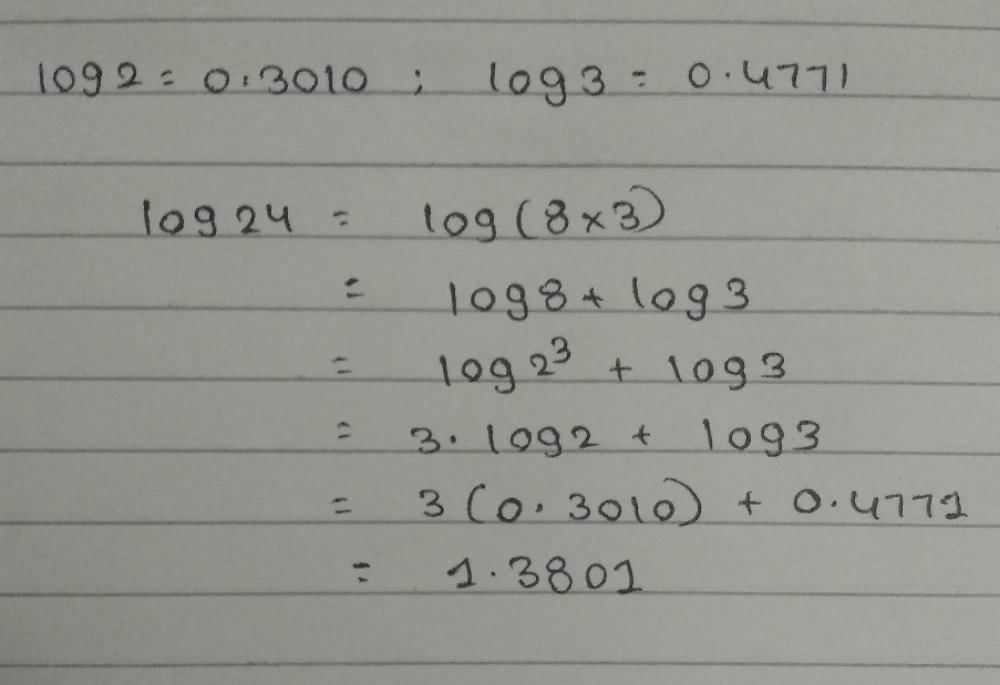 log 2 = 0.3010 ; log 3 = 0.4771
log 24 = log (8 × 3)
= log 8 + log 3
= log 2³ + log 3
= 3. log 2 + log 3
= 3 (0.3010) + 0.4771
= 1.3801